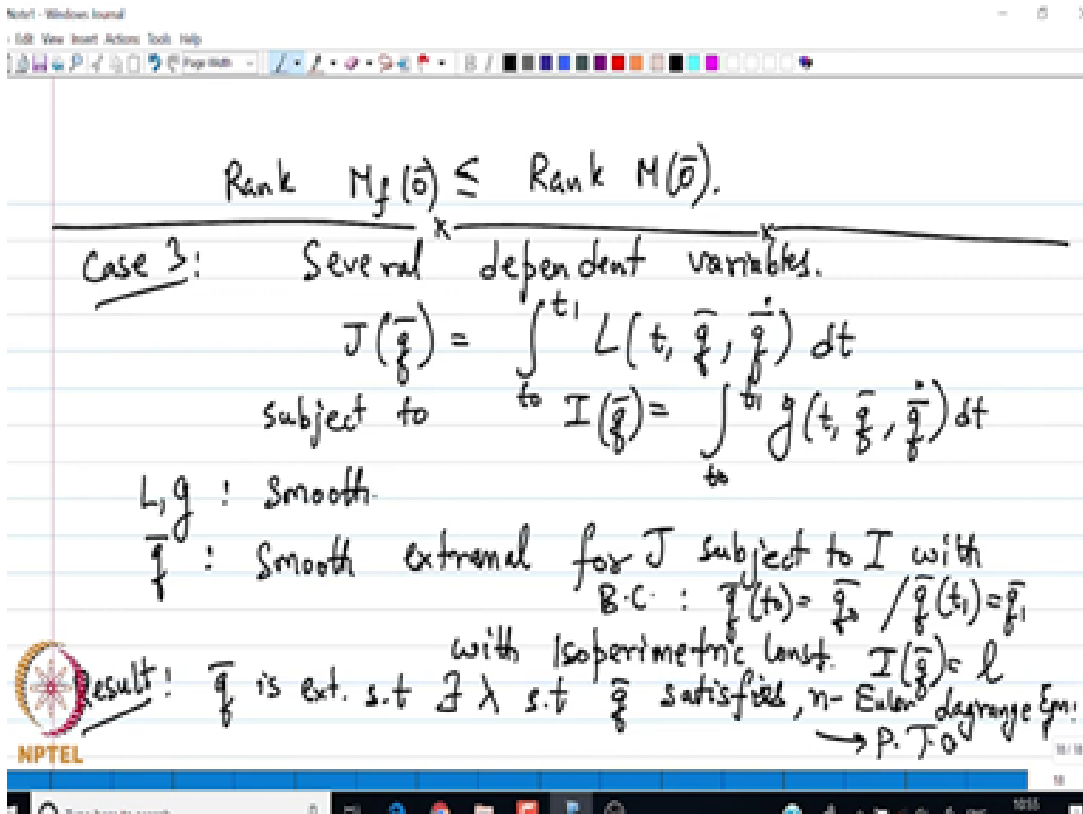 Note1 - Windows Journal
Edit View Insert Actions Tools Help
Page Width
B I
Rank M_f(0̄) ≤ Rank M(0̄).
Case 3: Several dependent variables.
J(q̄) = ∫_{t0}^{t1} L(t, q̄, q̄̇) dt
subject to I(q̄) = ∫_{t0}^{t1} g(t, q̄, q̄̇) dt
L, g : Smooth.
q̄ : Smooth extremal for J subject to I with
B.C. : q̄(t0) = q̄0 / q̄(t1) = q̄1
with Isoperimetric Const. I(q̄) = l
Result: q̄ is ext. s.t ∃ λ s.t q̄ satisfies, n- Euler Lagrange Eqn:
→ P.T.O
NPTEL
18/18
18
Type here to search
ENG
10:55